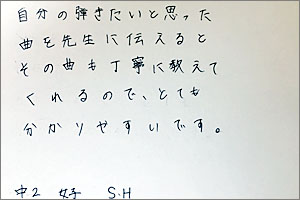 自分の弾きたいと思った
曲を先生に伝えると
その曲も丁寧に教えて
くれるので、とても
分かりやすいです。
中2 女子 S.H